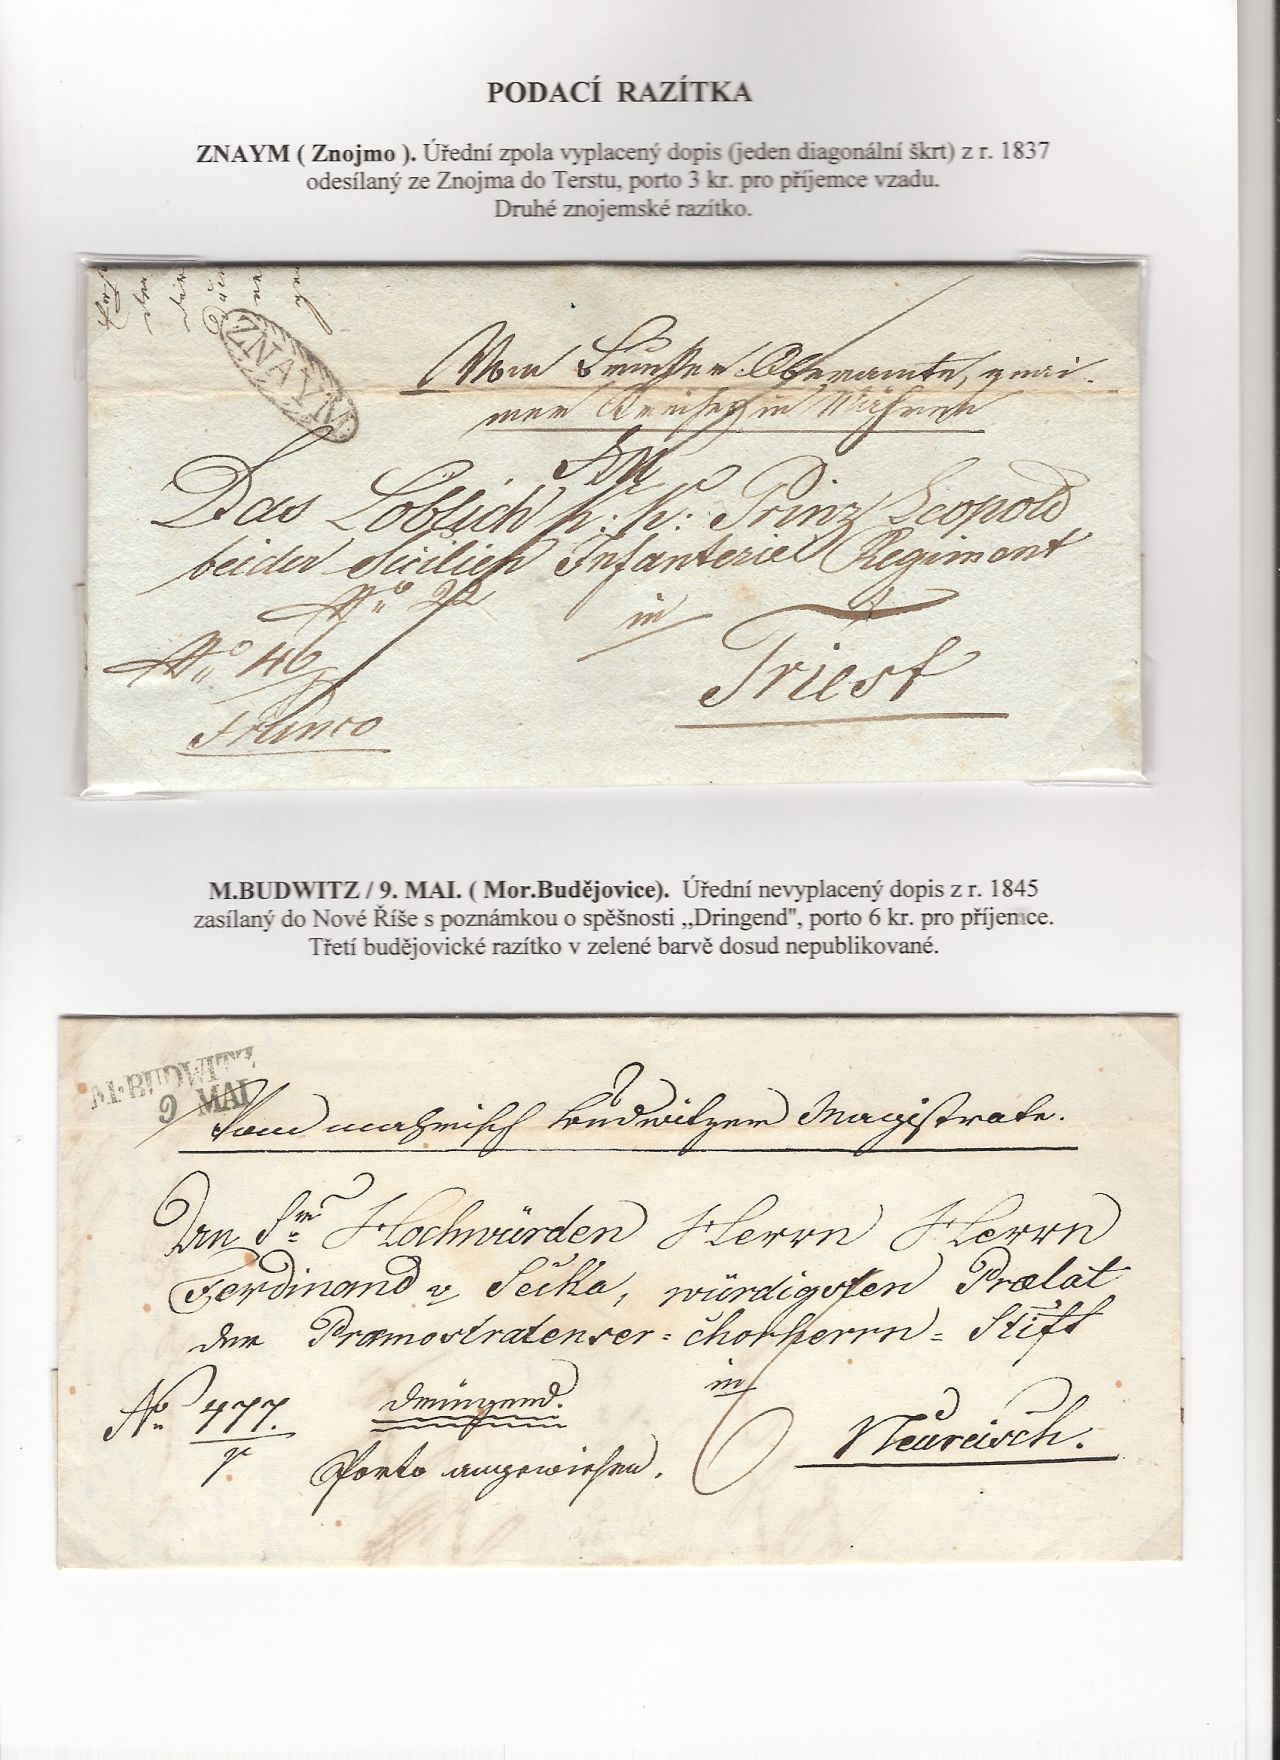 PODACÍ RAZÍTKA
ZNAYM ( Znojmo ). Úřední zpola vyplacený dopis (jeden diagonální škrt) z r. 1837
odesílaný ze Znojma do Terstu, porto 3 kr. pro příjemce vzadu.
Druhé znojemské razítko.
ZNAYM
Vom Oberamte, znai-
mer Kreises in Mähren
An
Das Löblich k: k: Prinz Leopold
beider Sicilien Infanterie Regiment
No 22
in
No 46
Triest
Franco
M.BUDWITZ / 9. MAI. ( Mor.Budějovice). Úřední nevyplacený dopis z r. 1845
zasílaný do Nové Říše s poznámkou o spěšnosti „Dringend", porto 6 kr. pro příjemce.
Třetí budějovické razítko v zelené barvě dosud nepublikované.
M·BUDWITZ
9 MAI
Vom mährisch Budwitzer Magistrate.
An Sr Hochwürden Herrn Herrn
Ferdinand v Sečka, würdigsten Prælat
der Præmostratenser = Chorherrn = Stift
in
No 477. dringend.
Neureisch.
Porto angewiesen. 6